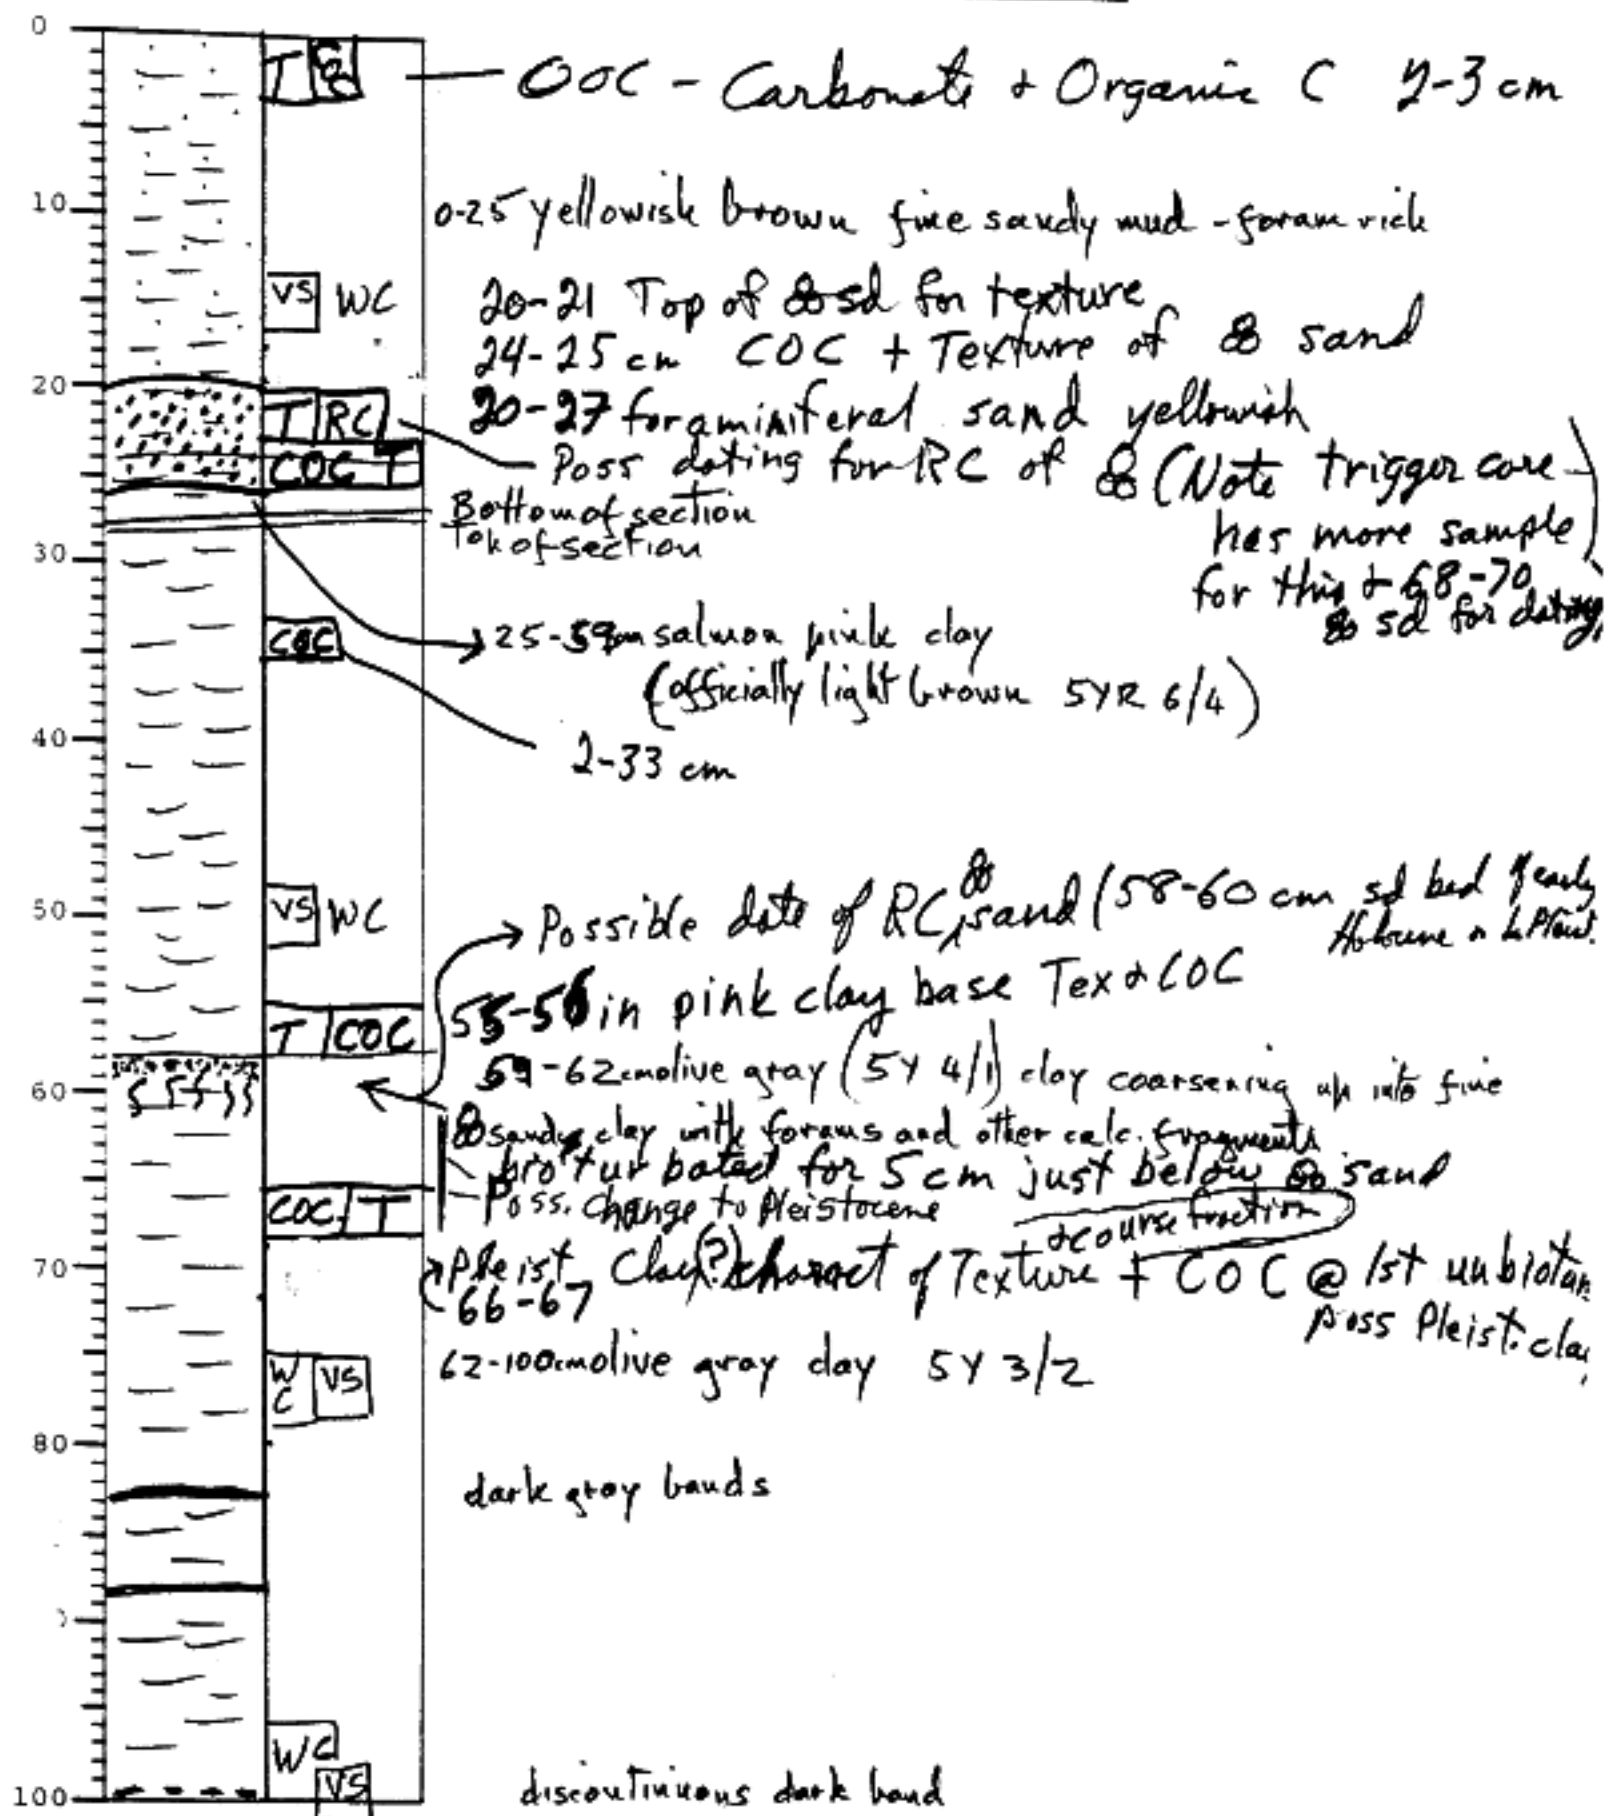 0
T
COC - Carbonate + Organic C 2-3 cm
10
0-25 yellowish brown fine sandy mud - foram rich
VS WC
20-21 Top of sd for texture
24-25 cm COC + Texture of sand
20
T RC
20-27 foraminiferal sand yellowish
COC T
Poss dating for RC of (Note trigger core
has more sample
for this + 68-70
sd for dating)
Bottom of section
Top of section
30
COC
25-59cm salmon pink clay
(officially light brown 5YR 6/4)
40
2-33 cm
50
VS WC
Possible date of RC sand (58-60 cm sd bed if early
Holocene or L Pleist.
55-56 in pink clay base Tex + COC
T COC
59-62cm olive gray (5Y 4/1) clay coarsening up into fine
60
sandy clay with forams and other calc. fragments
bioturbated for 5 cm just below sand
COC T
Poss. change to Pleistocene
+ course fraction
70
Pleist Clay(?) charact of Texture + COC @ 1st unbiotur
66-67
poss Pleist. clay
WC VS
62-100cm olive gray clay 5Y 3/2
80
dark gray bands
WC
VS
100
discontinuous dark band